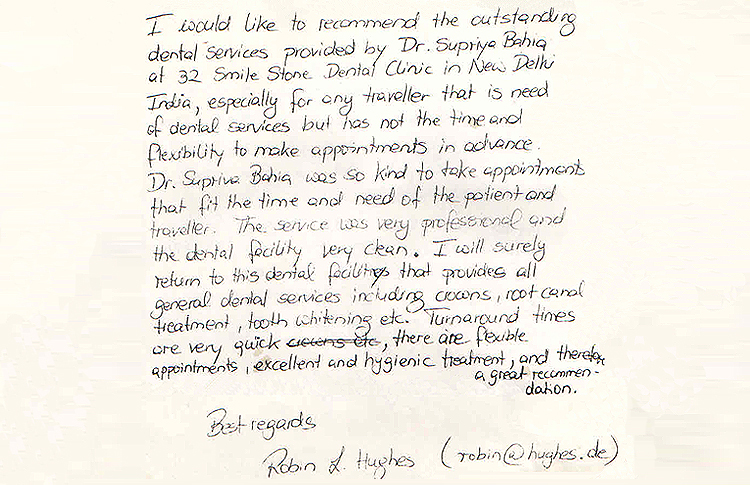 I would like to recommend the outstanding
dental services provided by Dr. Supriya Bahia
at 32 Smile Stone Dental Clinic in New Delhi
India, especially for any traveller that is need
of dental services but has not the time and
flexibility to make appointments in advance.
Dr. Supriya Bahia was so kind to take appointments
that fit the time and need of the patient and
traveller. The service was very professional and
the dental facility very clean. I will surely
return to this dental facility that provides all
general dental services including crowns, root canal
treatment, tooth whitening etc. Turnaround times
are very quick crowns etc, there are flexible
appointments, excellent and hygienic treatment, and therefor
a great recommen-
dation.
Best regards
Robin L. Hughes (robin@hughes.de)